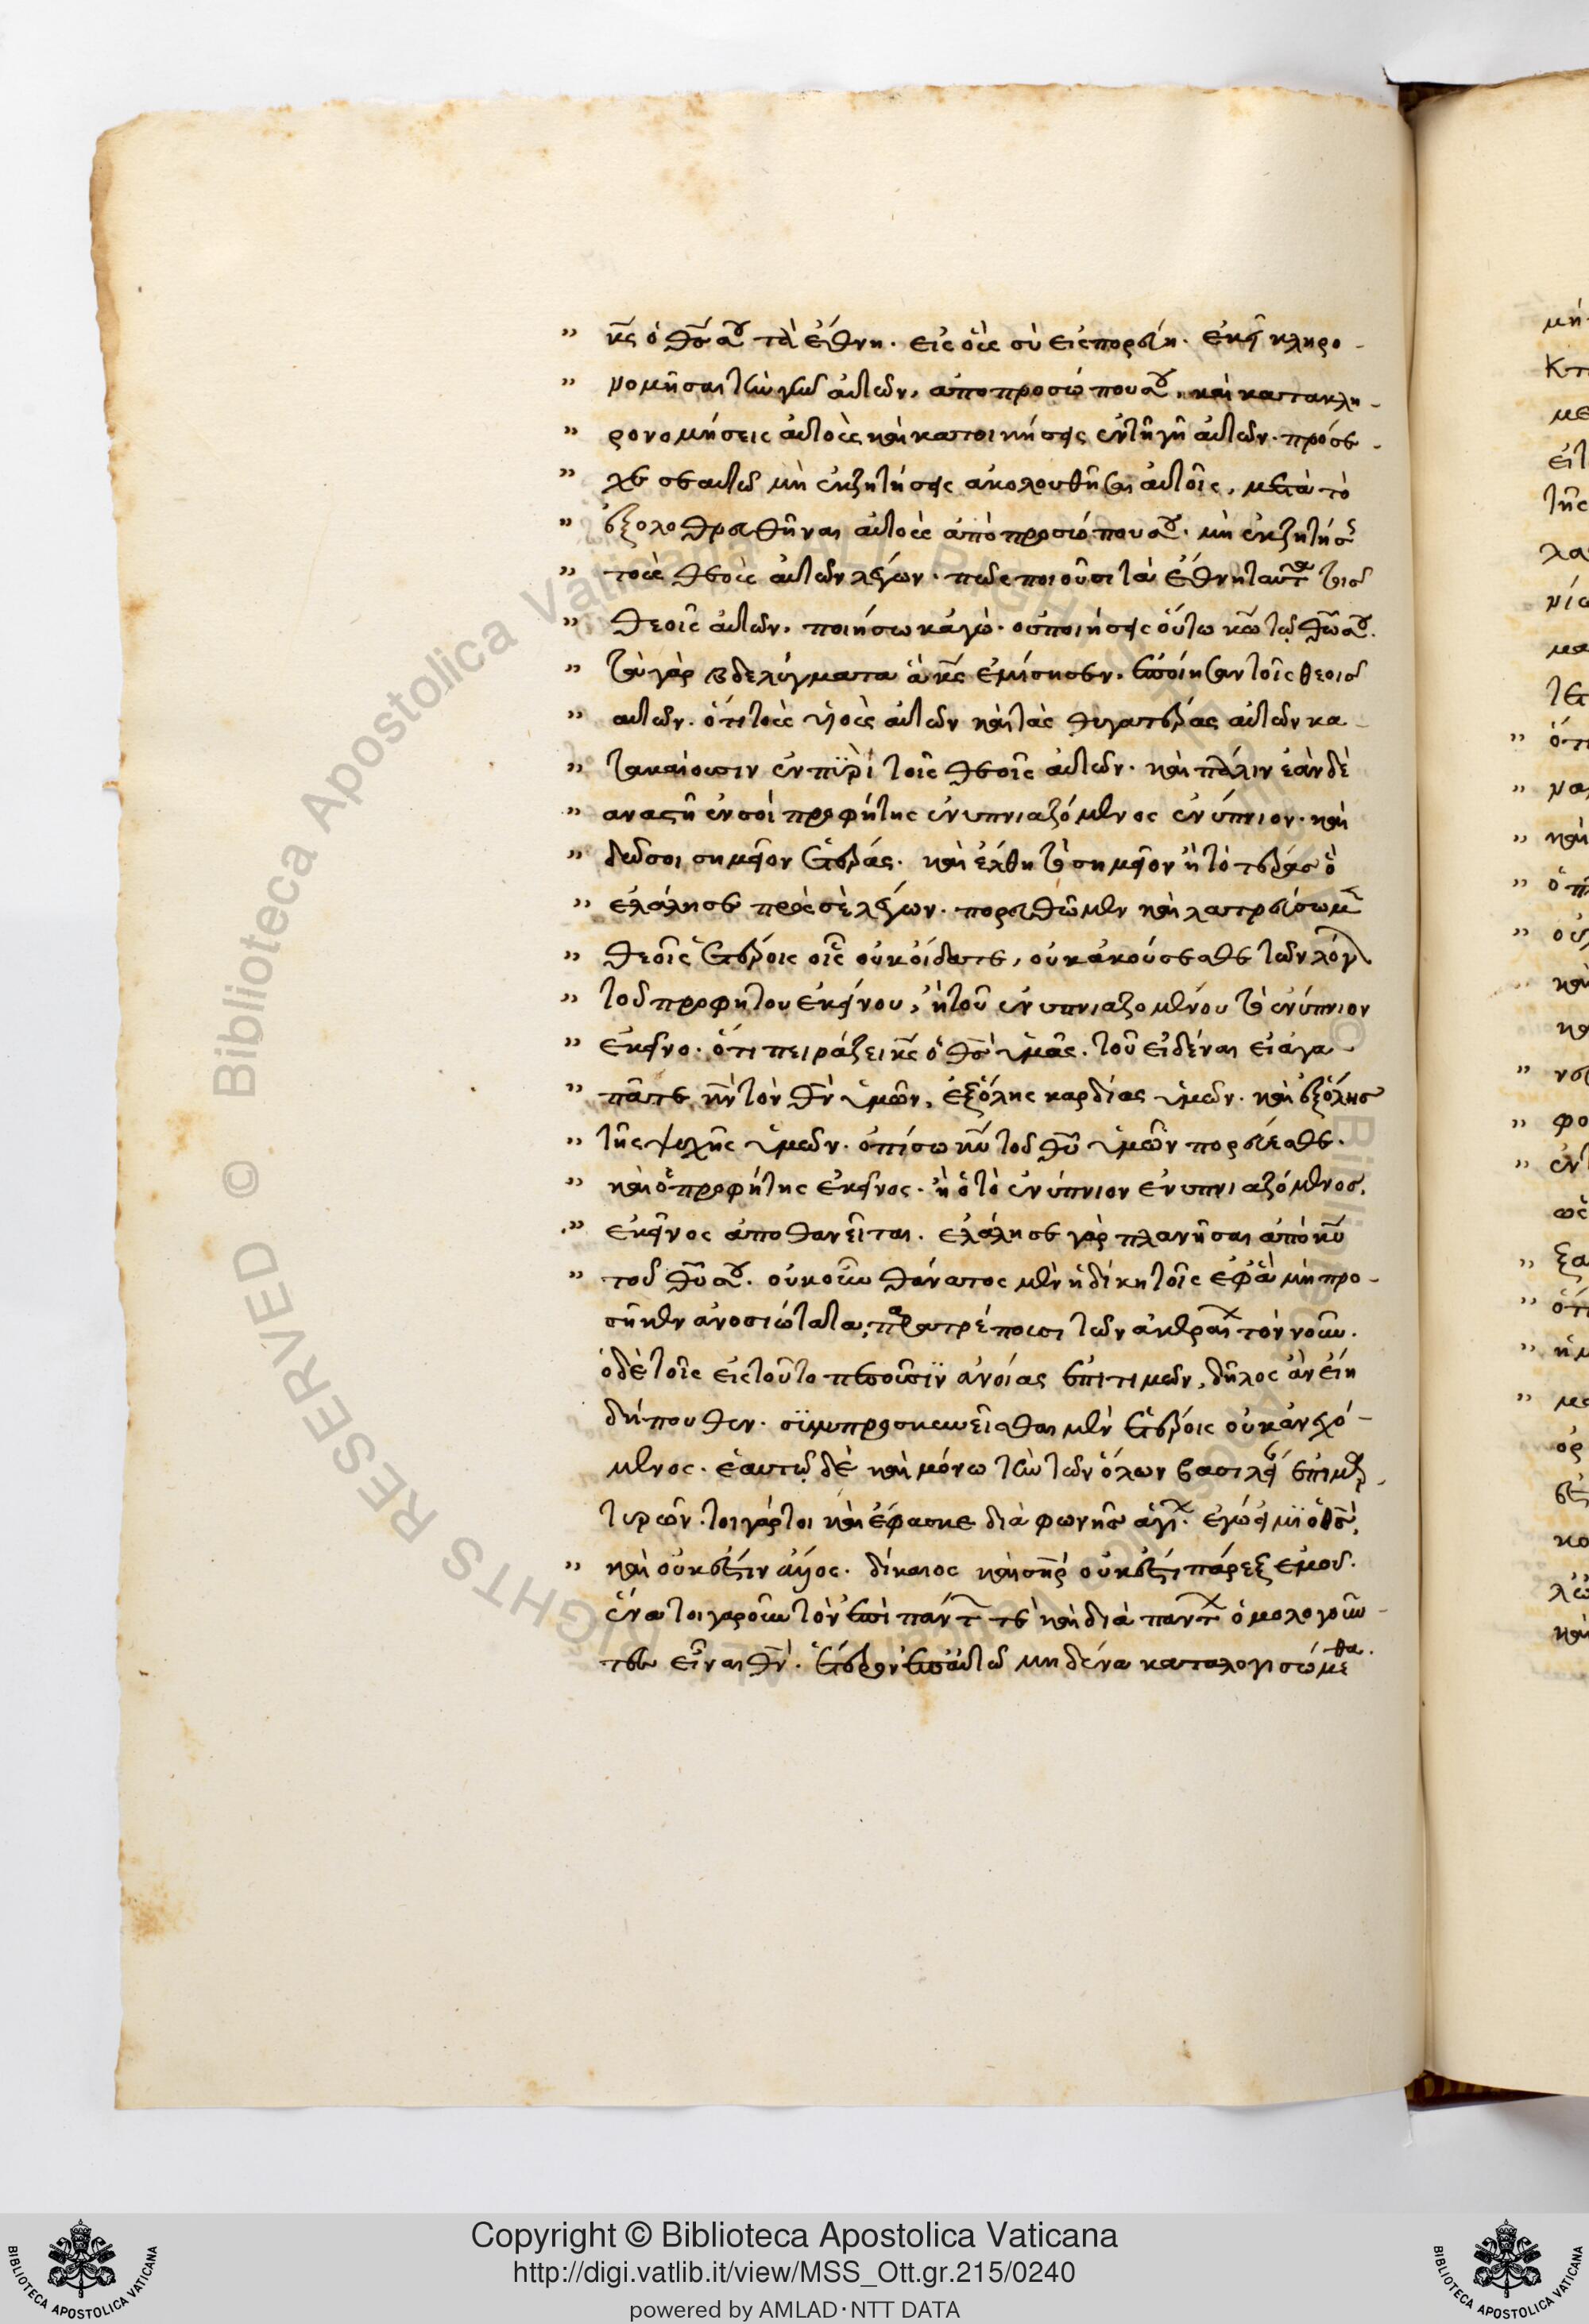 κ̅ς̅ ὁ θ̅ς̅ σου τὰ ἔθνη. εἰς οὓς σὺ εἰσπορεύη. ἐκεῖ κληρο-
νομῆσαι τὴν γῆν αὐτῶν, ἀπο προσώπου σου, καὶ κατακλη-
ρονομήσεις αὐτοὺς καὶ κατοικήσεις ἐν τῆ γῆ αὐτῶν. πρόσε-
χε σεαυτῶ μὴ ἐκζητήσεις ἀκολουθῆσαι αὐτοῖς, μετὰ τὸ
ἐξολοθρευθῆναι αὐτοὺς ἀπὸ προσώπου σου. μὴ ἐκζητήσης
τοὺς θεοὺς αὐτῶν λέγων. πῶς ποιοῦσι τὰ ἔθνη ταῦτα τοῖς
θεοῖς αὐτῶν, ποιήσω κἀγὼ. οὐ ποιήσεις οὕτω κ̅ω̅ τῷ θ̅ω̅ σου.
τὰ γὰρ βδελύγματα ἃ κ̅ς̅ ἐμίσησεν, ἐποίησαν τοῖς θεοῖς
αὐτῶν. ὅτι τοὺς υἱοὺς αὐτῶν καὶ τὰς θυγατέρας αὐτῶν κα-
τακαίουσιν ἐν πϋρὶ τοῖς θεοῖς αὐτῶν. καὶ πάλιν ἐὰν δὲ
αναστῆ ἐν σοὶ προφήτης ἐνυπνιαζόμενος ἐνύπνιον. καὶ
δῶ σοι σημεῖον ἢ τέρας. καὶ ἔλθη τὸ σημεῖον ἢ τὸ τέρας ὃ
ἐλάλησε πρὸς σὲ λέγων. πορευθῶμεν καὶ λατρεύσωμεν
θεοῖς ἑτέροις οἷς οὐκ οἴδατε, οὐκ ἀκούσεσθε τῶν λόγων
τοῦ προφήτου ἐκείνου, ἢ τοῦ ἐνυπνιαζομένου τὸ ἐνύπνιον
ἐκεῖνο. ὅτι πειράζει κ̅ς̅ ὁ θ̅ς̅ ὑμᾶς. τοῦ εἰδέναι εἰ ἀγα-
πᾶτε κ̅ν̅ τὸν θ̅ν̅ ὑμῶν, ἐξ ὅλης καρδίας ὑμῶν. καὶ ἐξ ὅλης
τῆς ψυχῆς ὑμῶν. ὀπίσω κ̅υ̅ τοῦ θ̅υ̅ ὑμῶν πορεύεσθε.
καὶ ὁ προφήτης ἐκεῖνος. ἢ ὁ τὸ ἐνύπνιον ἐνυπνιαζόμενος,
ἐκεῖνος ἀποθανεῖται. ἐλάλησε γὰρ πλανῆσαι ἀπὸ κ̅υ̅
τοῦ θ̅υ̅ σου. οὐκοῦν θάνατος μὲν ἡ δίκη τοῖς ἐφ' ἃ μὴ προ-
σῆκεν ἀνοσιώτατα, παρατρέπουσι τῶν τὸν νοῦν.
ὁ δὲ τοῖς εἰς τοῦτο πεσοῦσϊν ἀνοίας ἐπιτιμῶν, δῆλος ἂν εἴη
δήπουθεν. σϋμπροσκυνεῖσθαι μὲν ἑτέροις οὐκ ἀνεχό-
μενος. ἑαυτῷ δὲ καὶ μόνω τὴν τῶν ὅλων βασιλεί
τυρῶν. τοιγάρτοι καὶ ἔφασκε διὰ φωνῆς ἁγί. ἐγώ εἰμϊ ὁ θ̅ς̅,
καὶ οὐκ ἔστιν ἄλλος. δίκαιος καὶ σ̅η̅ρ̅ οὐκ ἔστι πάρεξ ἐμοῦ.
ἕνα τοιγαροῦν τὸν ἐπὶ πάντας τε καὶ διὰ πάντων ὁμολογοῦν-
τες εἶναι θ̅ν̅. ἕτερον ἐπ' αὐτῶ μηδένα καταλογισώμεθα.